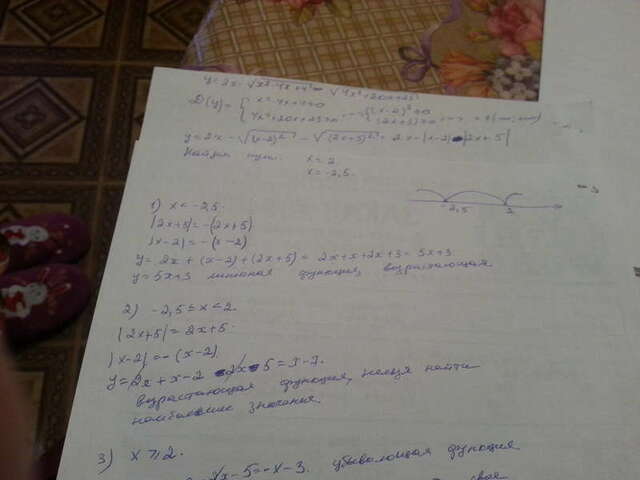 y = 2x - √x² - 4x + 4 - √4x² + 20x + 25
D(y) = { x² - 4x + 4 ≥ 0
4x² + 20x + 25 ≥ 0 { (x-2)² ≥ 0
(2x+5)² ≥ 0
y = 2x - √(x-2)² - √(2x+5)² = 2x - |x-2| - |2x+5|
Найдём нули. x = 2
x = -2,5.
-2,5 2
1) x < -2,5.
|2x+5| = -(2x+5)
|x-2| = -(x-2)
y = 2x + (x-2) + (2x+5) = 2x + x + 2x + 3 = 5x+3
y = 5x+3 линейная функция, возрастающая
2) -2,5 ≤ x < 2.
|2x+5| = 2x+5.
|x-2| = -(x-2)
y = 2x + x - 2 - 2x - 5 = x - 7.
возрастающая функция, нельзя найти
наибольшие значения.
3) x ≥ 2.
2x - 5 = -x - 3. убывающая функция
свое